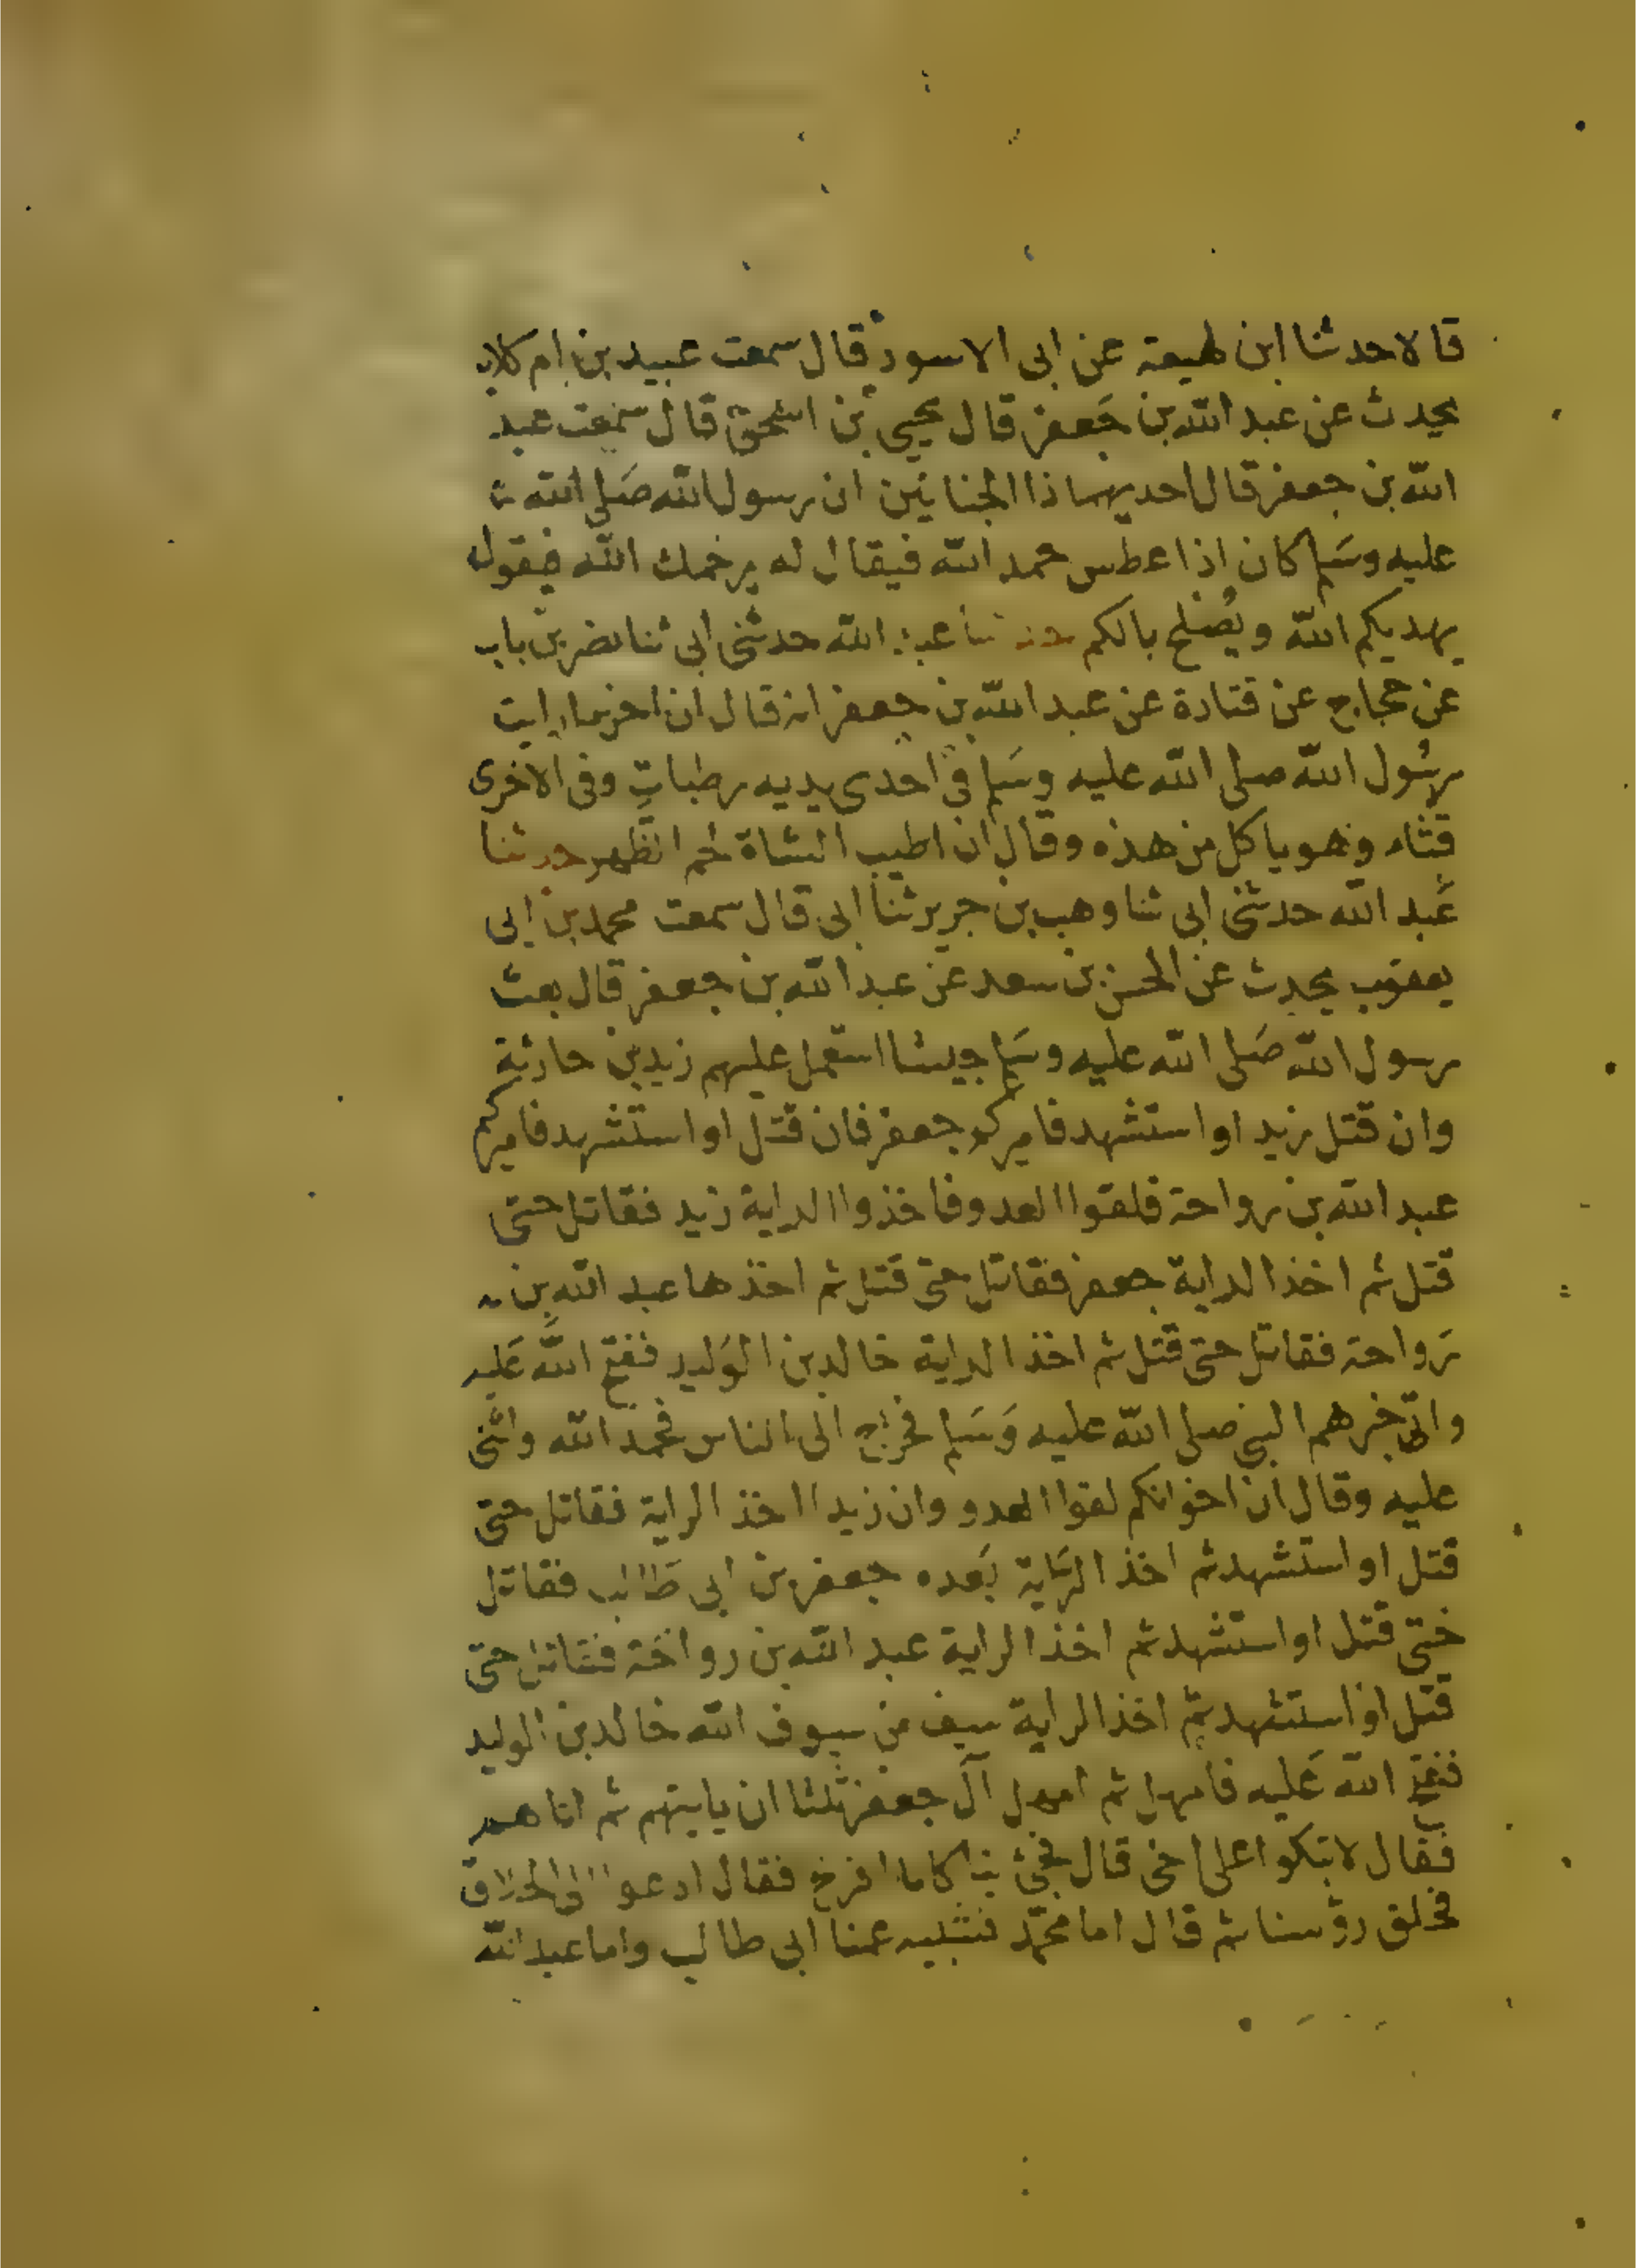 قالا حدثنا ابن لهيعة عن ابى الاسود قال سمعت عبيد بن ام كلاب
يحدث عن عبد الله بن جعفر قال يحيى بن اسحق قال سمعت عبد
الله بن جعفر قال احديهما ذا الجناحين ان رسول الله صلى الله
عليه وسلم كان اذا عطس حمد الله فيقال له يرحمك الله فيقول
يهديكم الله ويُصلح بالكم حدثنا عبد الله حدثنى ابى ثنا نضر بن باب
عن حجاج عن قتادة عن عبد الله بن جعفر انه قال ان اخر ما رايت
رسُول الله صلى الله عليه وسَلم فى احدى يديه رطبات وفى الاخرى
قثاء وهو ياكل من هذه وقال ان اطيب الشاة لحم الظهر حدثنا
عَبد الله حدثنى ابى ثنا وهب بن جرير ثنا ابى قال سمعت محمد بن ابى
يعقوب يحدث عن الحسن بن سعد عن عبد الله بن جعفر قال بعث
رسول الله صَلى الله عليه وسَلم جيشا استعمل عليهم زيد بن حارثة
وان قتل زيد او استشهد فاميركم جعفر فان قتل او استشهد فاميركم
عبد الله بن رواحة فلقوا العدو فاخذوا الراية زيد فقاتل حتى
قتل ثم اخذ الراية جعفر فقاتل حتى قتل ثم اخذها عبد الله بن
رَواحة فقاتل حتى قتل ثم اخذ الراية خالد بن الوَليد ففتح الله عَليه
واتى خبرهم النبى صلى الله عليه وَسَلم فخرج الى الناس فحمد الله واثنى
عليه وقال ان اخوانكم لقوا العدو وان زيدا اخذ الراية فقاتل حتى
قتل او استشهد ثم اخذ الرَاية بَعده جعفر بن ابى طَالب فقاتل
حتى قتل او استشهد ثم اخذ الراية عبد الله بن رواحَة فقاتل حتى
قتل او استشهد ثم اخذ الراية سيف من سيوف الله خالد بن الوليد
ففتح الله عَليه فامهل ثم امهل آل جعفر ثلثا ان ياتيهم ثم اتاهم
فقال لا تبكوا على اخى قال فجئ بنا كاما افرخ فقال ادعوا الى الحلاق
فحلق رؤسنا ثم قال اما محمّد فشبيه عمنا ابى طالب واما عبد الله